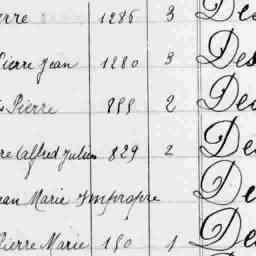 erre 1286 3 De
Pierre Jean 1280 3 Des
s Pierre 899 2 De
re Calfred Julien 829 2 De
ean Marie Impropre De
Pierre Marie 190 1 De